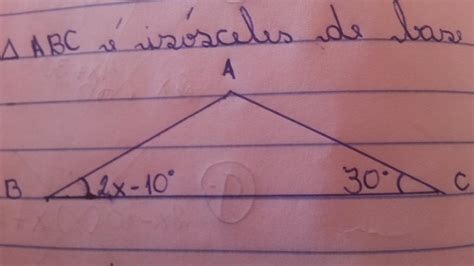 △ ABC é isósceles de base
A
B 2x-10° 30° C